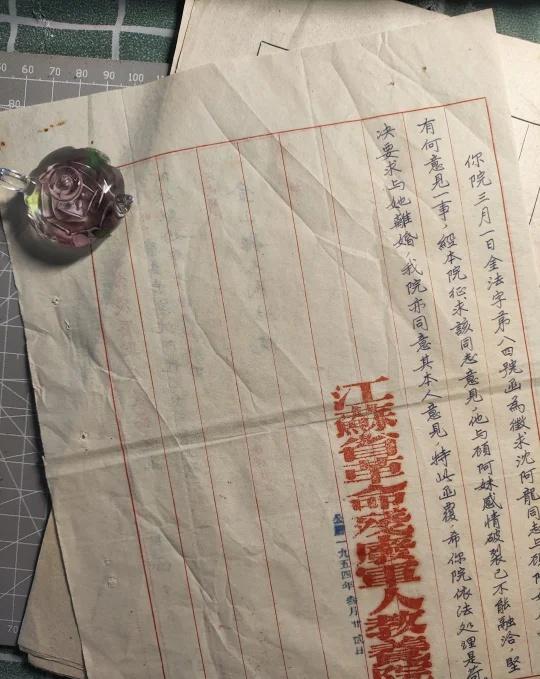 你院三月一日金法字第八四號函為徵求沈阿龍同志与顾阿妹
有何意見一事，經本院征求該同志意見，他与顾阿妹感情破裂已不能融洽，堅
决要求与她離婚，我院亦同意其本人意見，特此函覆，希你院依法处理是荷
江蘇省革命殘廢軍人教養院
公曆一九五四年 月 日
50 60 70 80 90 100 110
80
70